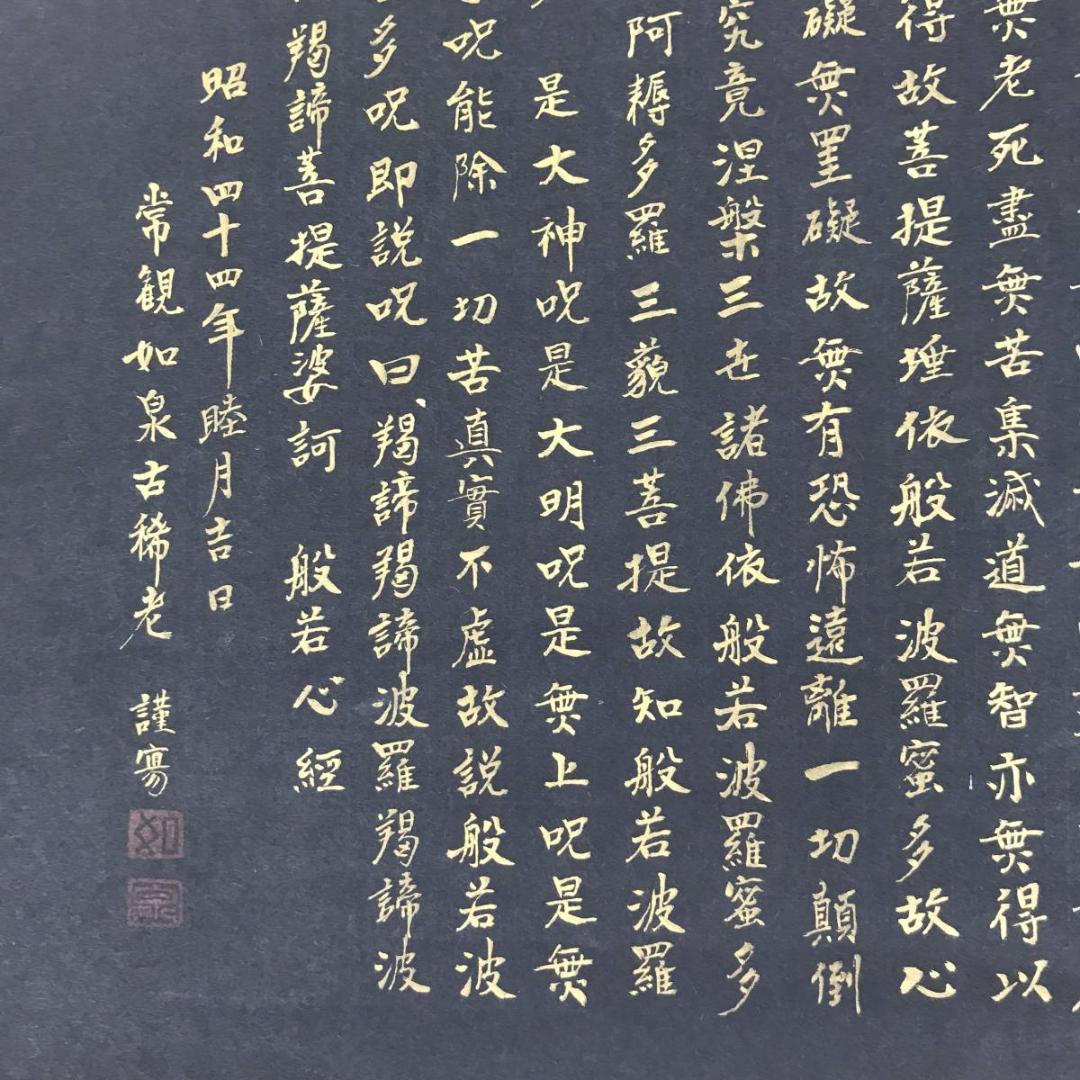 無老死盡無苦集滅道無智亦無得以
得故菩提薩埵依般若波羅蜜多故心
礙無罣礙故無有恐怖遠離一切顛倒
究竟涅槃三世諸佛依般若波羅蜜多
阿耨多羅三藐三菩提故知般若波羅
是大神呪是大明呪是無上呪是無
呪能除一切苦真實不虚故説般若波
多呪即説呪曰、羯諦羯諦波羅羯諦波
羯諦菩提薩婆訶 般若心經
昭和四十四年睦月吉日
常観如泉古稀老 謹写
如
泉